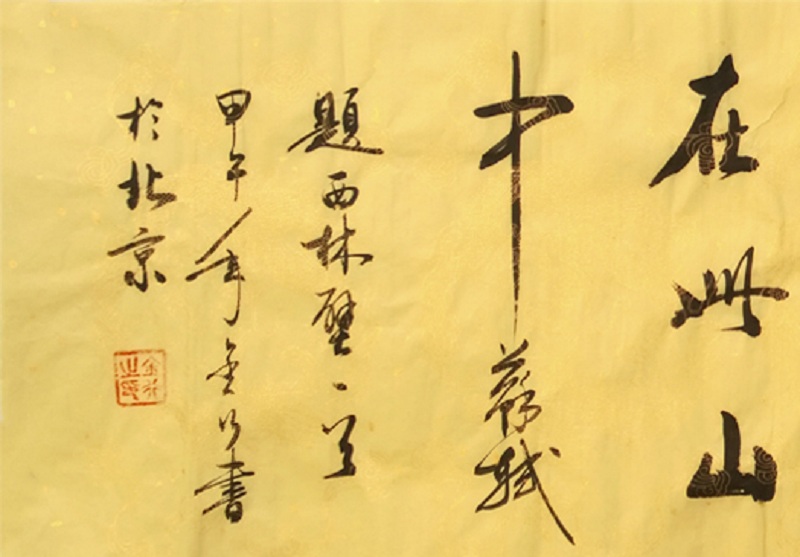 在此山
中 蘇軾
題西林壁一首
甲午年金行書
於北京
金行之印